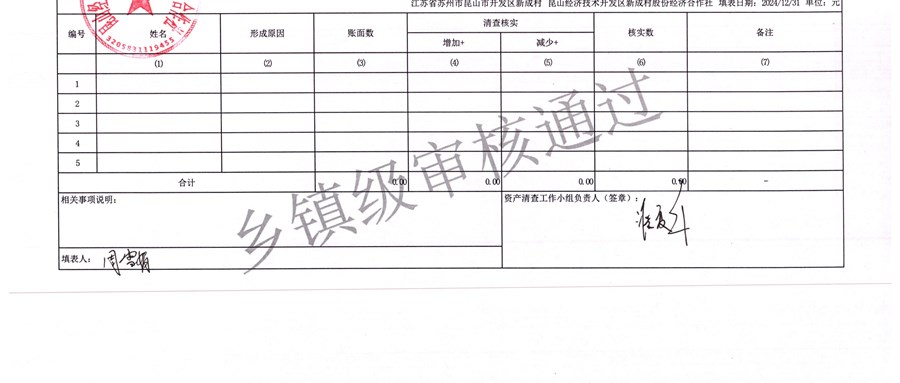 江苏省苏州市昆山市开发区新成村 昆山经济技术开发区新成村股份经济合作社 填表日期：2024/12/31 单位：元
编号 姓名 形成原因 账面数 清查核实 核实数 备注
增加+ 减少+
(1) (2) (3) (4) (5) (6) (7)
1
2
3
4
5
合计 0.00 0.00 0.00 0.00 -
相关事项说明： 资产清查工作小组负责人（签章）：
填表人：
乡镇级审核通过
3205831119455